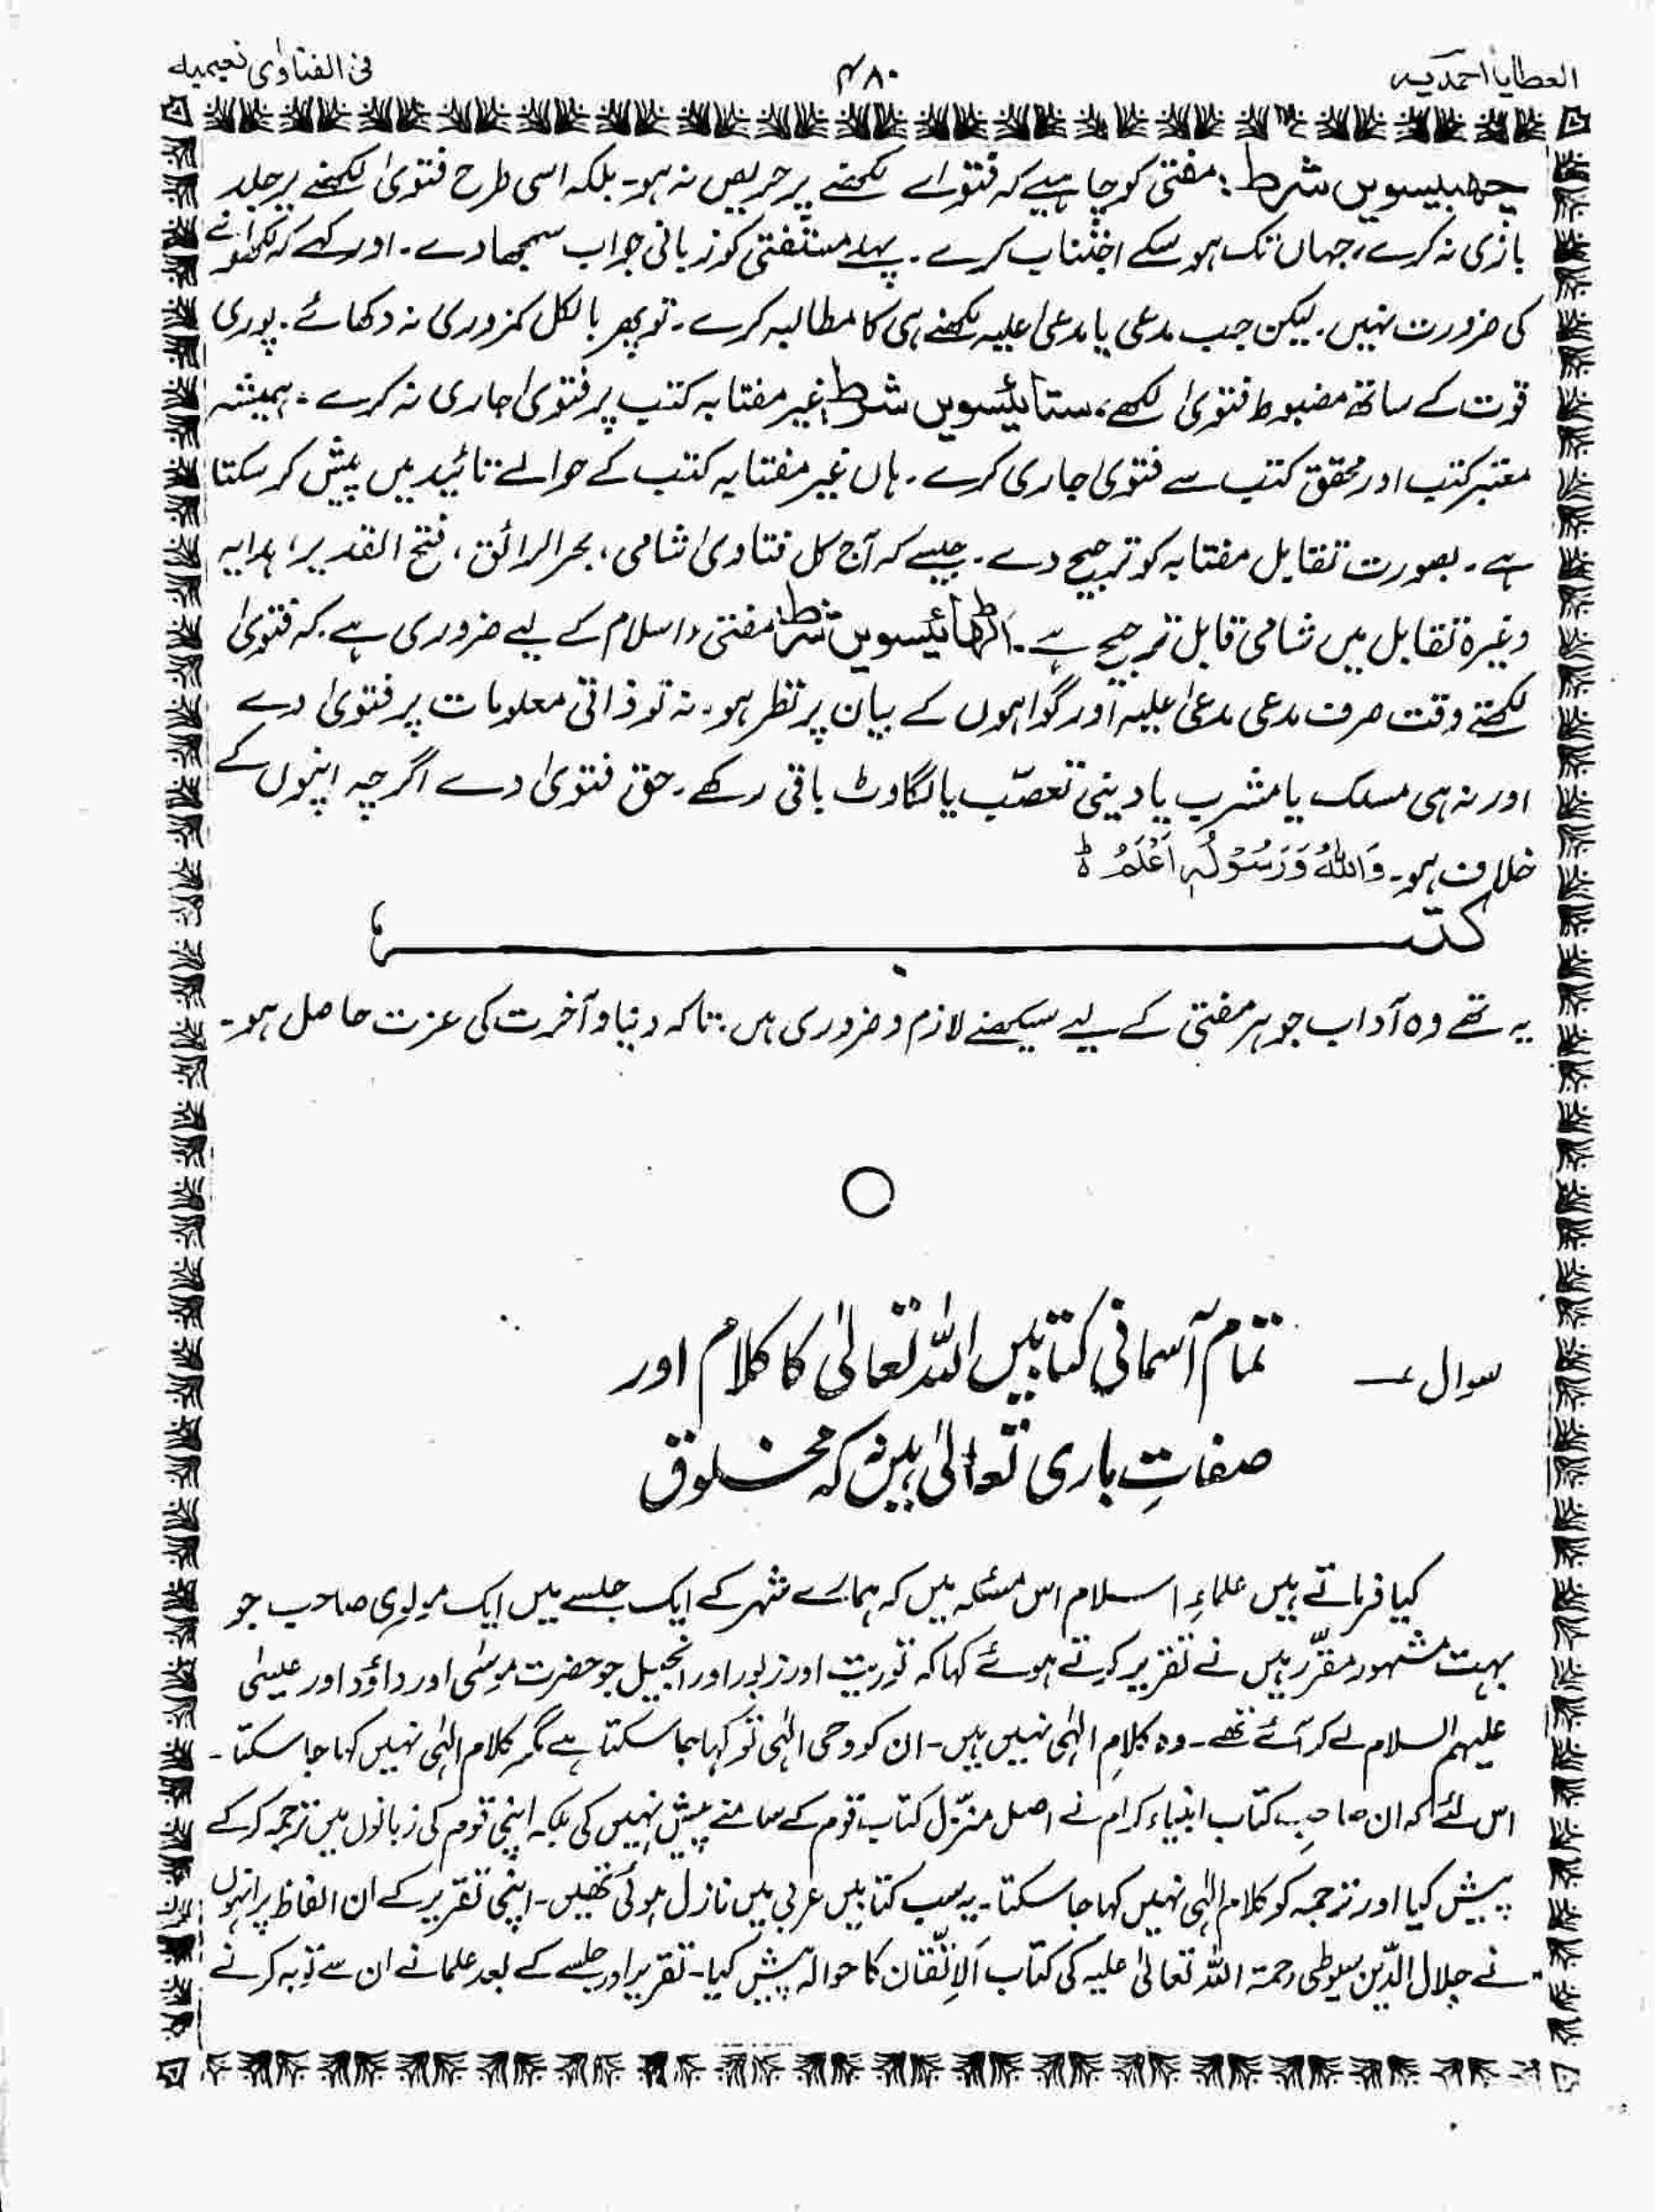 العطایا احمدیہ ۴۸۰ فی الفتاوٰی نعیمیہ
چھبیسویں شرط: مفتی کو چاہیے کہ فتوٰے لکھنے پر حریص نہ ہو۔ بلکہ اسی طرح فتویٰ لکھنے پر جلد
بازی نہ کرے، جہاں تک ہو سکے اجتناب کرے۔ پہلے مستفتی کو زبانی جواب سمجھا دے۔ اور کہے کہ لکھوانے
کی ضرورت نہیں۔ لیکن جب مدعی یا مدعیٰ علیہ لکھنے ہی کا مطالبہ کرے۔ تو پھر بالکل کمزوری نہ دکھائے۔ پوری
قوت کے ساتھ مضبوط فتویٰ لکھے، ستائیسویں شرط: غیر مفتابہ کتب پر فتویٰ جاری نہ کرے۔ ہمیشہ
معتبر کتب اور محقق کتب سے فتویٰ جاری کرے۔ ہاں غیر مفتابہ کتب کے حوالے تائید میں پیش کر سکتا
ہے۔ بصورت تقابل مفتابہ کو ترجیح دے۔ جیسے کہ آج کل فتاویٰ شامی، بحر الرائق، فتح القدیر، ہدایہ
وغیرہ تقابل میں شامی قابل ترجیح ہے۔ اٹھائیسویں شرط: مفتیِ اسلام کے لیے ضروری ہے۔ کہ فتویٰ
لکھتے وقت صرف مدعی مدعیٰ علیہ اور گواہوں کے بیان پر نظر ہو۔ نہ تو ذاتی معلومات پر فتویٰ دے
اور نہ ہی مسلک یا مشرب یا دینی تعصّب یا لگاوٹ باقی رکھے۔ حق فتویٰ دے اگرچہ اپنوں کے
خلاف ہو۔ وَاللّٰہُ وَرَسُوْلُہٗ اَعْلَمُ ؕ
کتبـــــــــہ
یہ تھے وہ آداب جو ہر مفتی کے لیے سیکھنے لازم و ضروری ہیں: تاکہ دنیا و آخرت کی عزت حاصل ہو۔
سوال ؏ تمام آسمانی کتابیں اللہ تعالیٰ کا کلام اور
صفاتِ باری تعالیٰ ہیں نہ کہ مخلوق
کیا فرماتے ہیں علماءِ اسلام اس مسئلہ میں کہ ہمارے شہر کے ایک جلسے میں ایک مولوی صاحب جو
بہت مشہور مقرّر ہیں نے تقریر کرتے ہوئے کہا کہ توریت اور زبور اور انجیل جو حضرت موسیٰ اور داؤد اور عیسیٰ
علیہم السلام لے کر آئے تھے۔ وہ کلامِ الٰہی نہیں ہیں۔ ان کو وحی الٰہی تو کہا جا سکتا ہے مگر کلام الٰہی نہیں کہا جا سکتا۔
اس لئے کہ ان صاحبِ کتاب انبیاء کرام نے اصل منزّل کتاب قوم کے سامنے پیش نہیں کی بلکہ اپنی قوم کی زبانوں میں ترجمہ کر کے
پیش کیا اور ترجمہ کو کلام الٰہی نہیں کہا جا سکتا۔ یہ سب کتابیں عربی میں نازل ہوئی تھیں۔ اپنی تقریر کے ان الفاظ پر انہوں
نے جلال الدّین سیوطی رحمۃ اللہ تعالیٰ علیہ کی کتاب اَلاِتّقان کا حوالہ پیش کیا۔ تقریر اور جلسے کے بعد علما نے ان سے توبہ کرنے